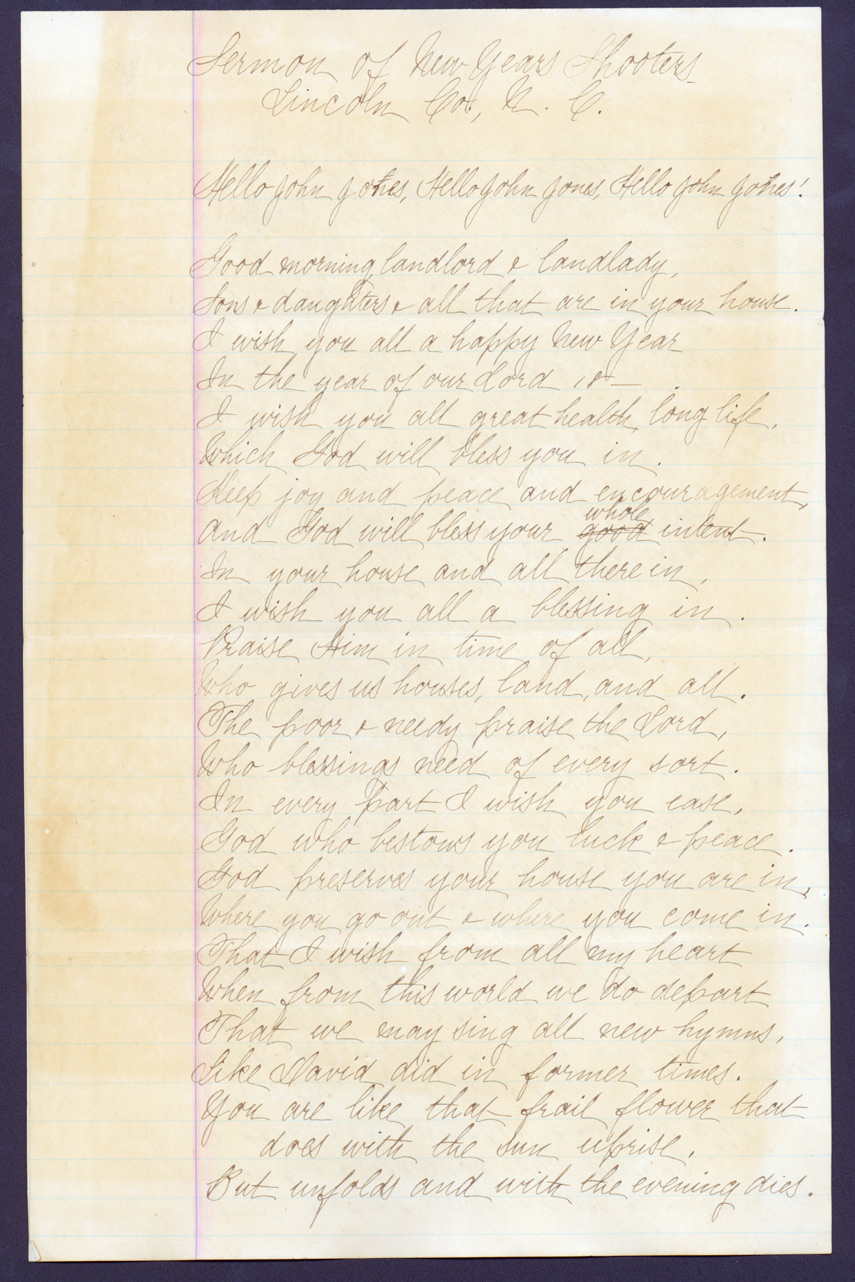 Sermon of New Years Shooters
Lincoln Co., N. C.
Hello John Jones, Hello John Jones, Hello John Jones!
Good morning, landlord & landlady,
Sons & daughters & all that are in your house.
I wish you all a happy New Year
In the year of our Lord, & —.
I wish you all great health, long life,
Which God will bless you in.
Keep joy and peace and encouragement,
whole
And God will bless your good intent.
In your house and all therein,
I wish you all a blessing in.
Praise Him in time of all,
Who gives us houses, land, and all.
The poor & needy praise the Lord,
Who blessings need of every sort.
In every part I wish you ease,
God who bestows you luck & peace.
God preserves your house you are in,
Where you go out & where you come in.
That I wish from all my heart
When from this world we do depart
That we may sing all new hymns,
Like David did in former times.
You are like that frail flower that
does with the sun uprise,
But unfolds and with the evening dies.